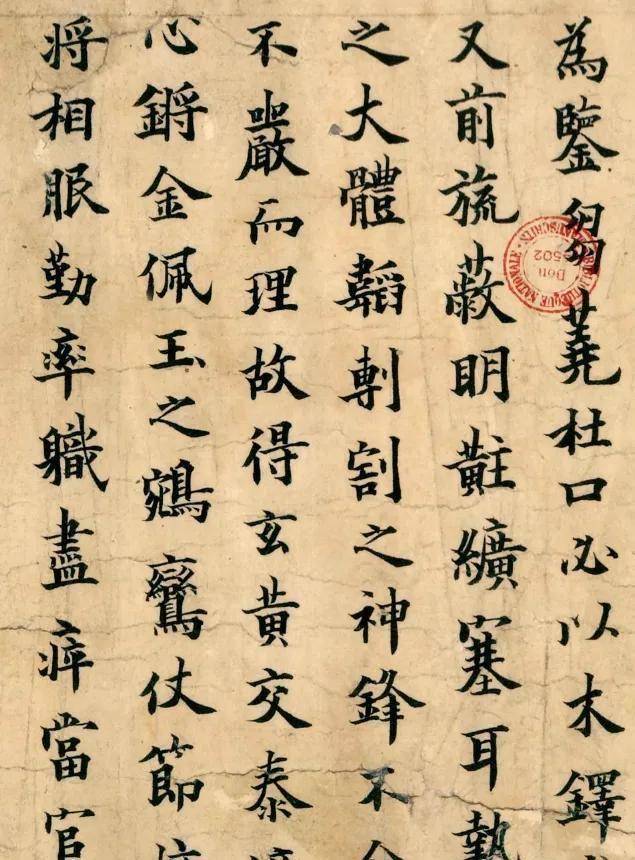 為鑒芻蕘杜口必以木鐸
又前旒蔽明黈纊塞耳執
之大體韜剸割之神鋒不
不嚴而理故得玄黃交泰
心鏘金佩玉之鵷鸞仗節
将相服勤率職盡瘁當官
BIBLIOTHEQUE NATIONALE MANUSCRITS
Don